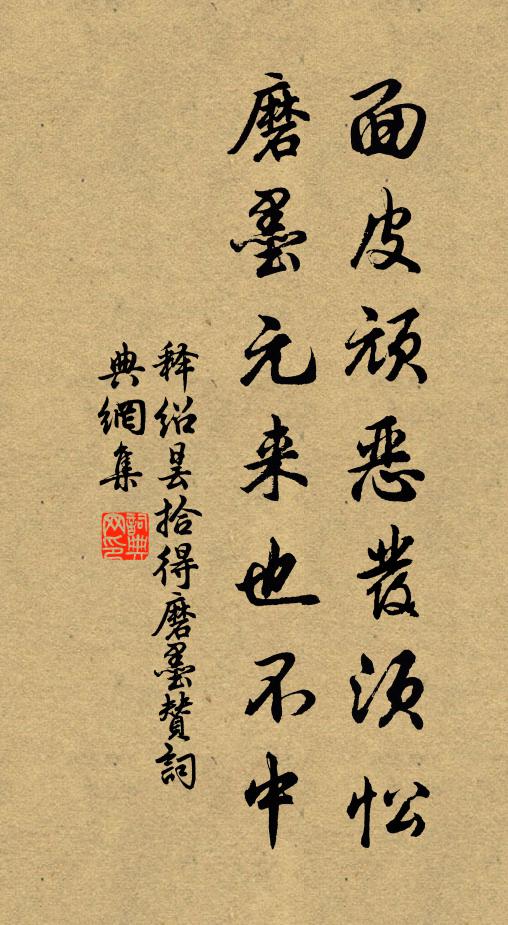 面皮顽恶發须忪
磨墨元来也不中
释绍昙拾得磨墨赞詞
典網集
詞典网印